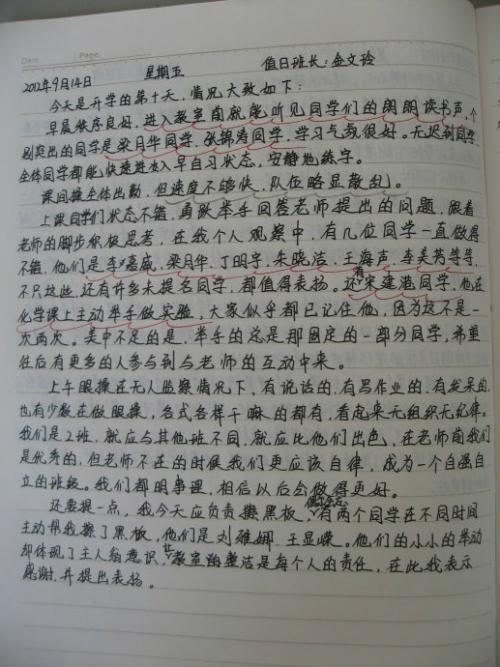 Date. Page.
2012年9月14日 星期五 值日班长:金文玲
今天是开学的第十天,情况大致如下:
早晨秩序良好,进入教室前就能听见同学们的朗朗读书声,个
别突出的同学是梁月华同学、张锦涛同学,学习气氛很好。无迟到同学,
全体同学都能快速进入早自习状态,安静地练字。
课间操全体出勤,但速度不够快,队伍略显散乱。
上课同学们状态不错,勇跃举手回答老师提出的问题,跟着
老师的脚步积极思考,在我个人观察中,有几位同学一直做得
不错,他们是李嘉威、梁月华、丁明宇、朱晓洁、王海声、李美芳等等,
不只这些,还有许多未提名同学,都值得表扬。还有宋建港同学,他在
化学课上主动举手做实验,大家似乎都已记住他,因为这不是一
次两次。美中不足的是,举手的总是那固定的一部分同学,希望
往后有更多的人参与到与老师的互动中来。
上午眼操在无人监察情况下,有说话的,有写作业的,有发呆的,
也有少数在做眼操,各式各样干嘛的都有,看起来无组织无纪律。
我们是2班,就应与其他班不同,就应比他们出色,在老师前我们
是优秀的,但老师不在的时候我们更应该自律,成为一个自强自
立的班级。我们都明事理,相信以后会做得更好。
还要提一点,我今天应负责擦黑板,有两个同学在不同时间
主动帮我擦了黑板,他们是刘雅娜、王显嵘。他们的小小的举动
却体现了主人翁意识,教室的整洁是每个人的责任,在此我表示
感谢,并提出表扬。